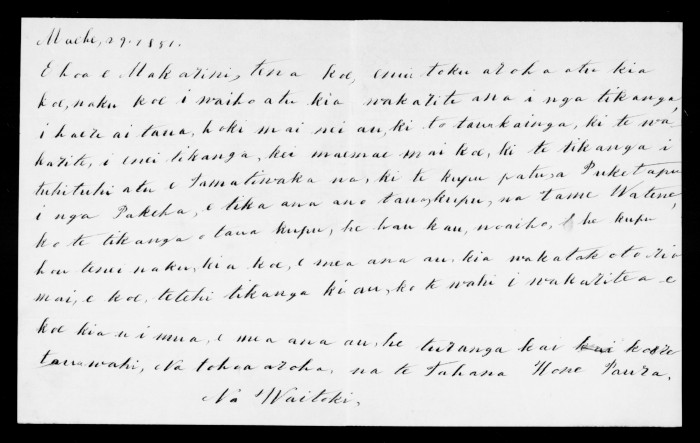 Maehe, 29. 1851.
E hoa e Makarini, tena koe, e nui toku aroha atu kia
koe, naku koe i waiho atu kia wakarite ana i nga tikanga,
i haere ai taua, hoki mai nei au, ki to taua kainga, ki te wa-
karite, i enei tikanga, kei maemae mai koe, ki te tikanga i
tuhituhi atu e Tamatiwaka na, ki te kupu patu, a Puketapu
i nga Pakeha, e tika ana ano taua kupu, na tame Watene,
ko te tikanga o taua kupu, he hau kau, waiho, he kupu
hou tenei naku, kia koe, e mea ana au, kia wakatakoto ria
mai, e koe, tetehi tikanga ki au, ko te wahi i wakaritea e
koe kia u i mua, e mea ana au, he turanga kai kore
tauawahi, Na to hoa aroha, na te Tahana Hone Paura.
Na Waitoki,